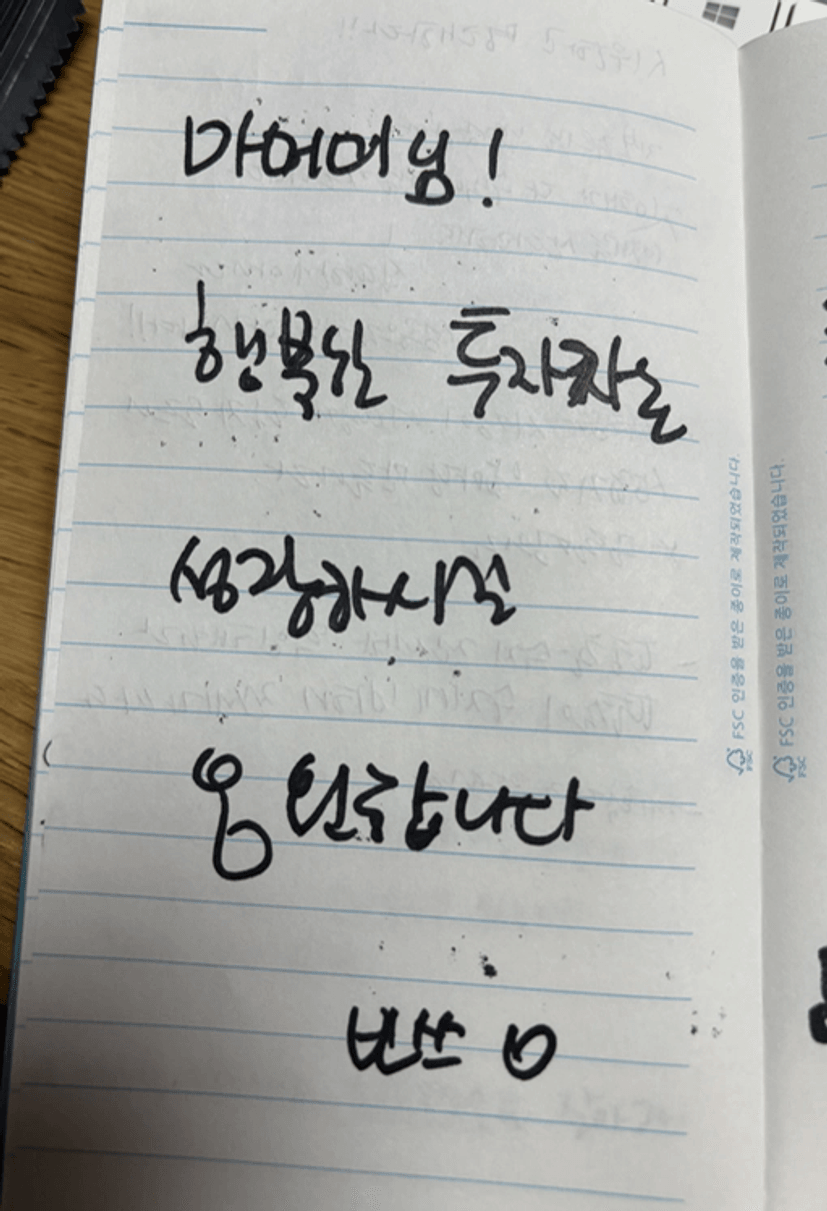 마머머님!
행복한 투자자로
성장하시길
응원합니다
FSC 인증을 받은 종이로 제작되었습니다.
FSC 인증을 받은 종이로 제작되었습니다.